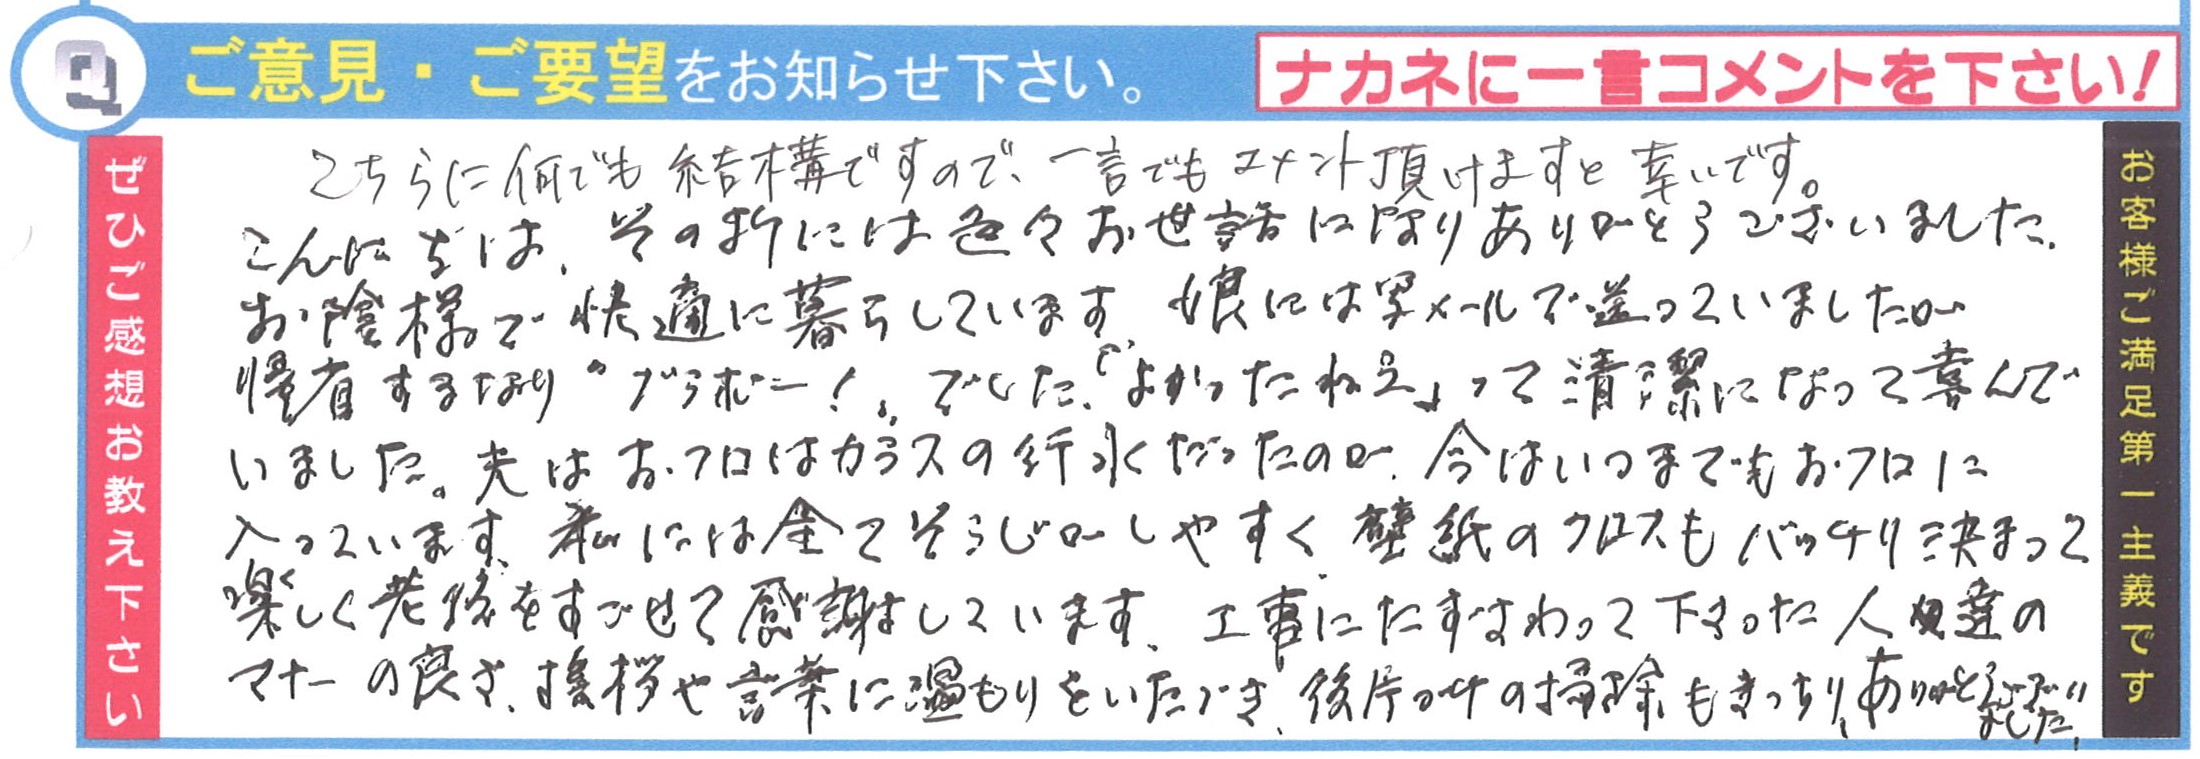 Q
ご意見・ご要望をお知らせ下さい。
ナカネに一言コメントを下さい!
ぜひご感想お教え下さい
こちらに何でも結構ですので、一言でもコメント頂けますと幸いです。
こんにちは、その折には色々お世話になりありがとうございました。
お陰様で快適に暮らしています。娘には写メールで送っていましたが
帰省するなり"ブラボー!"でした。「よかったねえ」って清潔になって喜んで
いました。夫はおフロはカラスの行水だったのが、今はいつまでもおフロに
入っています。私には全てそうじがしやすく壁紙のクロスもバッチリ決まって
楽しく老後をすごせて感謝しています。工事にたずさわって下さった人達の
マナーの良さ、挨拶や言葉に温もりをいただき、後片づけの掃除もきっちり、ありがとうございました。
お客様ご満足第一主義です